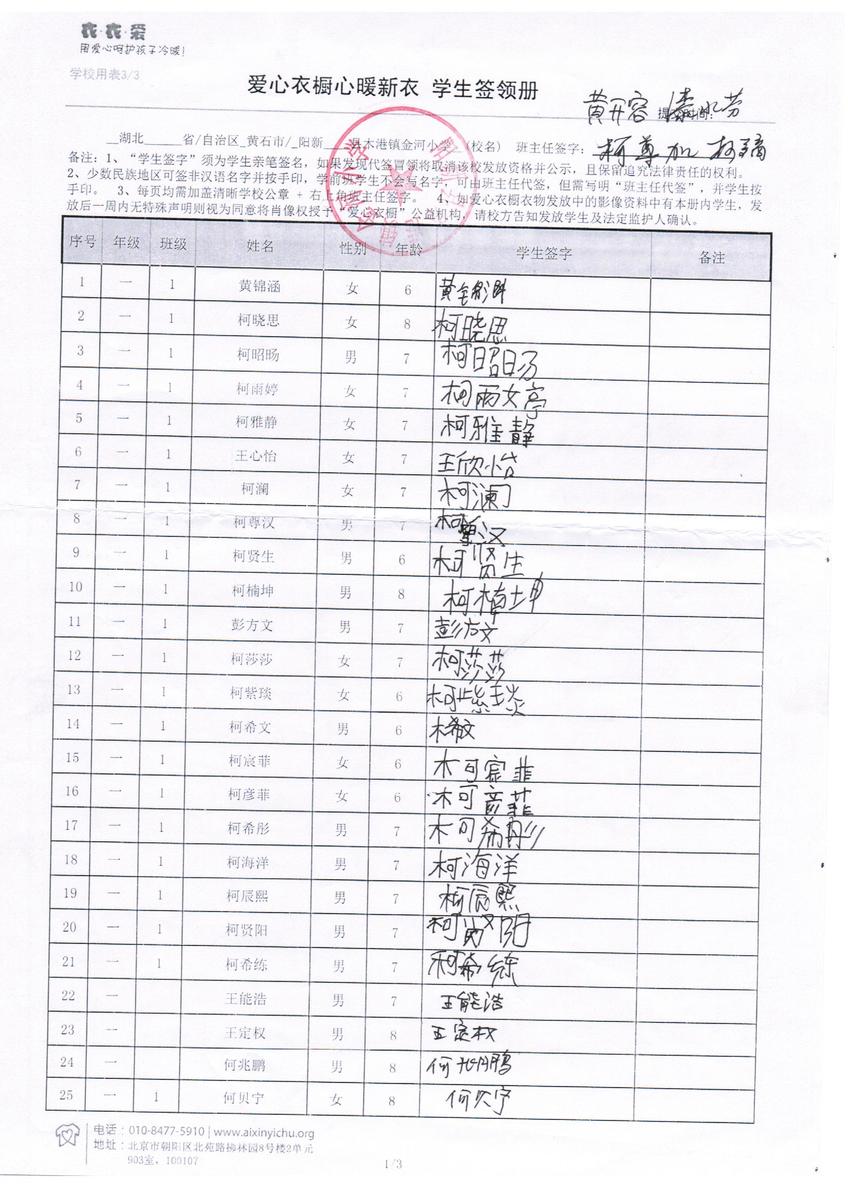 衣·衣·爱
用爱心呵护孩子冷暖!
学校用表3/3
爱心衣橱心暖新衣 学生签领册
黄开容
湖北 省/自治区 黄石市/ 阳新 县木港镇金河小学 (校名) 班主任签字: 柯尊加
备注:1、“学生签字”须为学生亲笔签名,如果发现代签冒领将取消该校发放资格并公示,且保留追究法律责任的权利。
2、少数民族地区可签非汉语名字并按手印,学前班学生不会写名字,可由班主任代签,但需写明“班主任代签”,并学生按
手印。 3、每页均需加盖清晰学校公章 + 右上角班主任签字。 4、如爱心衣橱衣物发放中的影像资料中有本册内学生,发
放后一周内无特殊声明则视为同意将肖像权授予“爱心衣橱”公益机构,请校方告知发放学生及法定监护人确认。
序号 年级 班级 姓名 性别 年龄 学生签字 备注
1 一 1 黄锦涵 女 6 黄锦涵
2 一 1 柯晓思 女 8 柯晓思
3 一 1 柯昭旸 男 7 柯昭旸
4 一 1 柯雨婷 女 7 柯雨婷
5 一 1 柯雅静 女 7 柯雅静
6 一 1 王心怡 女 7 王欣怡
7 一 1 柯澜 女 7 柯澜
8 一 1 柯尊汉 男 7 柯尊汉
9 一 1 柯贤生 男 6 柯贤生
10 一 1 柯楠坤 男 8 柯楠坤
11 一 1 彭方文 男 7 彭方文
12 一 1 柯莎莎 女 7 柯莎莎
13 一 1 柯紫琰 女 6 柯紫琰
14 一 1 柯希文 男 6 柯希文
15 一 1 柯宸菲 女 6 柯宸菲
16 一 1 柯彦菲 女 6 柯彦菲
17 一 1 柯希彤 男 7 柯希彤
18 一 1 柯海洋 男 7 柯海洋
19 一 1 柯辰熙 男 7 柯辰熙
20 一 1 柯贤阳 男 7 柯贤阳
21 一 1 柯希练 男 7 柯希练
22 一 王能浩 男 7 王能浩
23 一 王定权 男 8 王定权
24 一 何兆鹏 男 8 何兆鹏
25 一 1 何贝宁 女 8 何贝宁
电话:010-8477-5910 | www.aixinyichu.org
地址:北京市朝阳区北苑路柳林园8号楼2单元
903室,100107
1/3